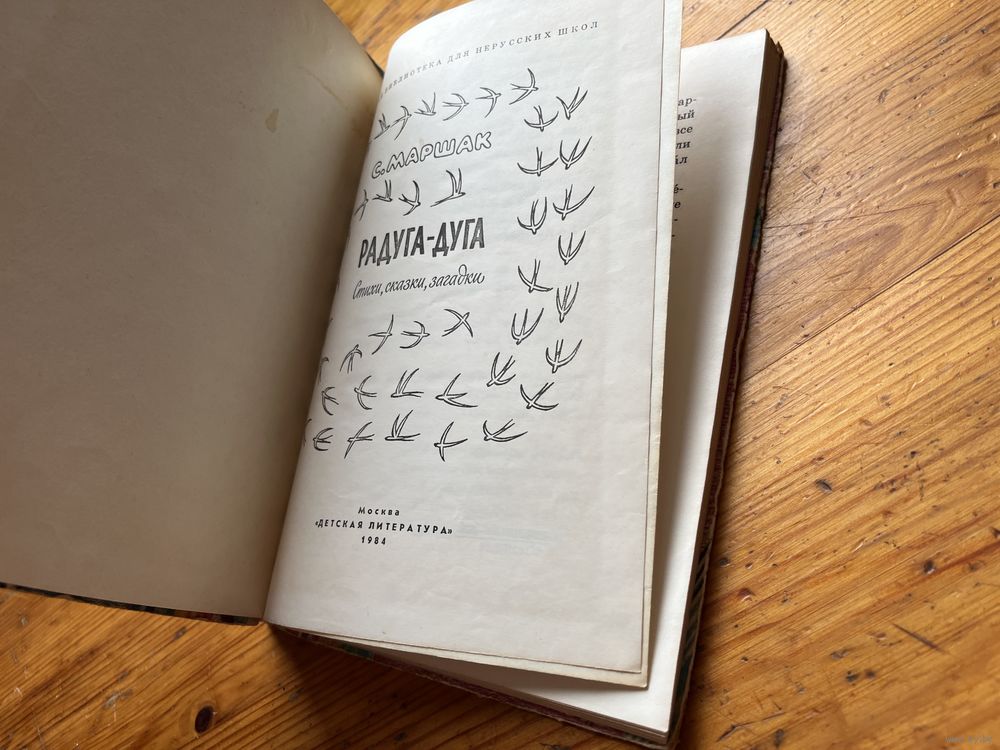 БИБЛИОТЕКА ДЛЯ НЕРУССКИХ ШКОЛ
С. МАРШАК
РАДУГА-ДУГА
Стихи, сказки, загадки
Москва
«ДЕТСКАЯ ЛИТЕРАТУРА»
1984
ар-
ый
все
ли
е-
е
-
-